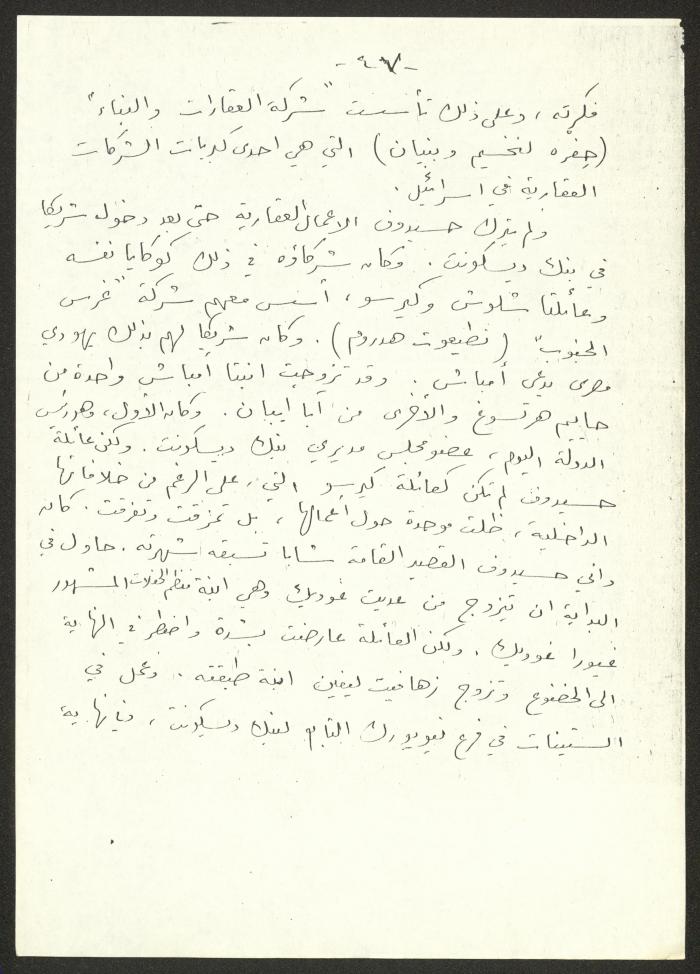 - ٤٧ -
فكرته، وعلى ذلك تأسست "شركة العقارات والبناء"
(حفره لنخسيم وبنيان) التي هي احدى كبريات الشركات
العقارية في اسرائيل.
ولم يترك حسيدوف الاعمال العقارية حتى بعد دخوله شريكا
في بنك ديسكونت. وكان شركاؤه في ذلك كوكايا نفسه
وعائلتا شلوش وكيرسو، أسس معهم شركة "غرس
الجنوب" (نطيعوت هدروم). وكان شريكا لهم بذلك يهودي
مصري يدعى أمباش. وقد تزوجت ابنتا أمباش واحدة من
حاييم هرتسوغ والأخرى من آبا ايبان. وكان الأول، وهو رئيس
الدولة اليوم، عضو مجلس مديري بنك ديسكونت. ولكن عائلة
حسيدوف لم تكن كعائلة كيرسو التي، على الرغم من خلافاتها
الداخلية، ظلت موحدة حول أعمالها، بل تمزقت وتفرقت. كان
داني حسيدوف القصير القامة شابا تسبقه شهرته. حاول في
البداية ان يتزوج من عديت غوديك وهي ابنة منظم الحفلات المشهور
غيورا غوديك. ولكن العائلة عارضت بشدة واضطر في النهاية
الى الخضوع وتزوج زهافيت ليفين ابنة طبقته. وعمل في
الستينات في فرع نيويورك التابع لبنك ديسكونت،